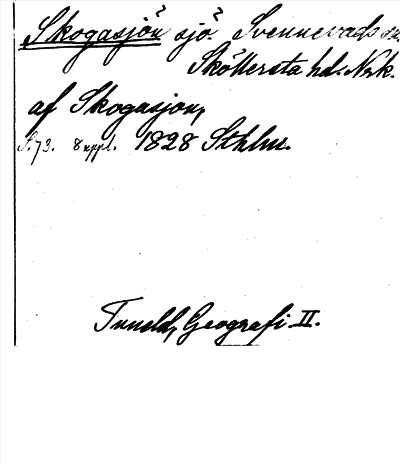 Skogasjön? sjö? Svennevads sn.
Sköllersta hd. Nrk.
af Skogasjon,
S. 73. 8 uppl. 1828 Sthlm.
Tuneld, Geografi II.